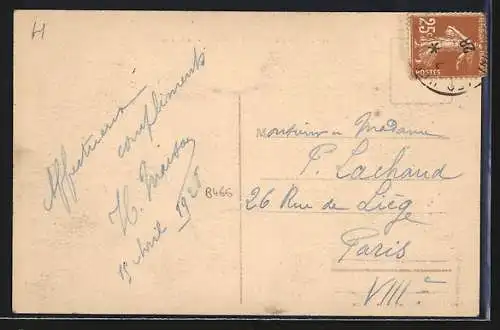 H
Affectueux
compliments
H.
15 Avril 1928
B466
25c
28
Monsieur & Madame
P. Lachaud
26 Rue de Liège
Paris
VIIIe